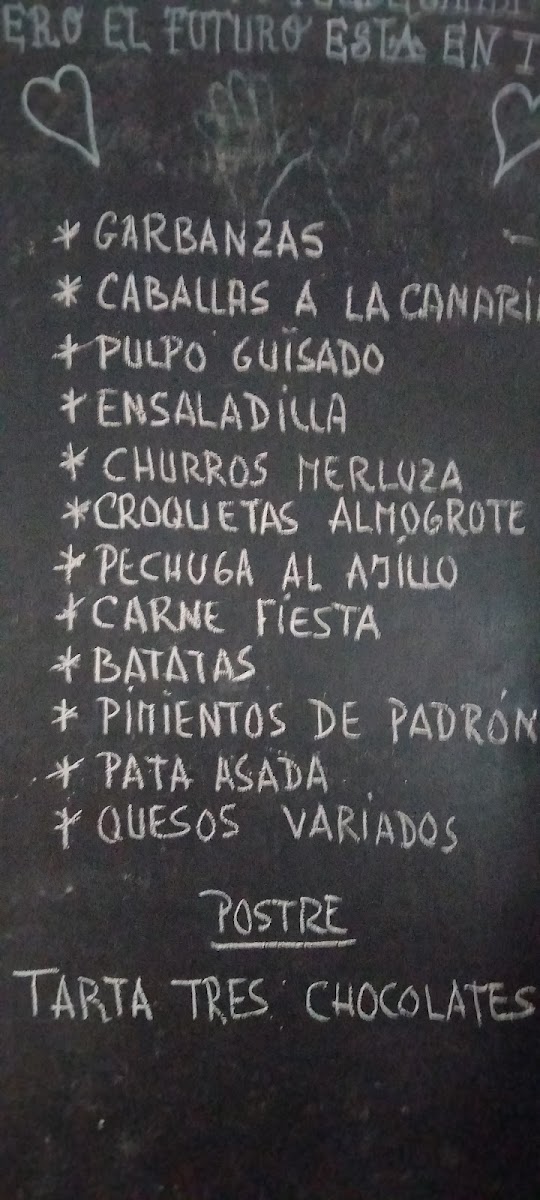 ERO EL FUTURO ESTA EN T
* GARBANZAS
* CABALLAS A LA CANARI
* PULPO GUISADO
* ENSALADILLA
* CHURROS MERLUZA
* CROQUETAS ALMOGROTE
* PECHUGA AL AJILLO
* CARNE FIESTA
* BATATAS
* PIMIENTOS DE PADRÓN
* PATA ASADA
* QUESOS VARIADOS
POSTRE
TARTA TRES CHOCOLATES